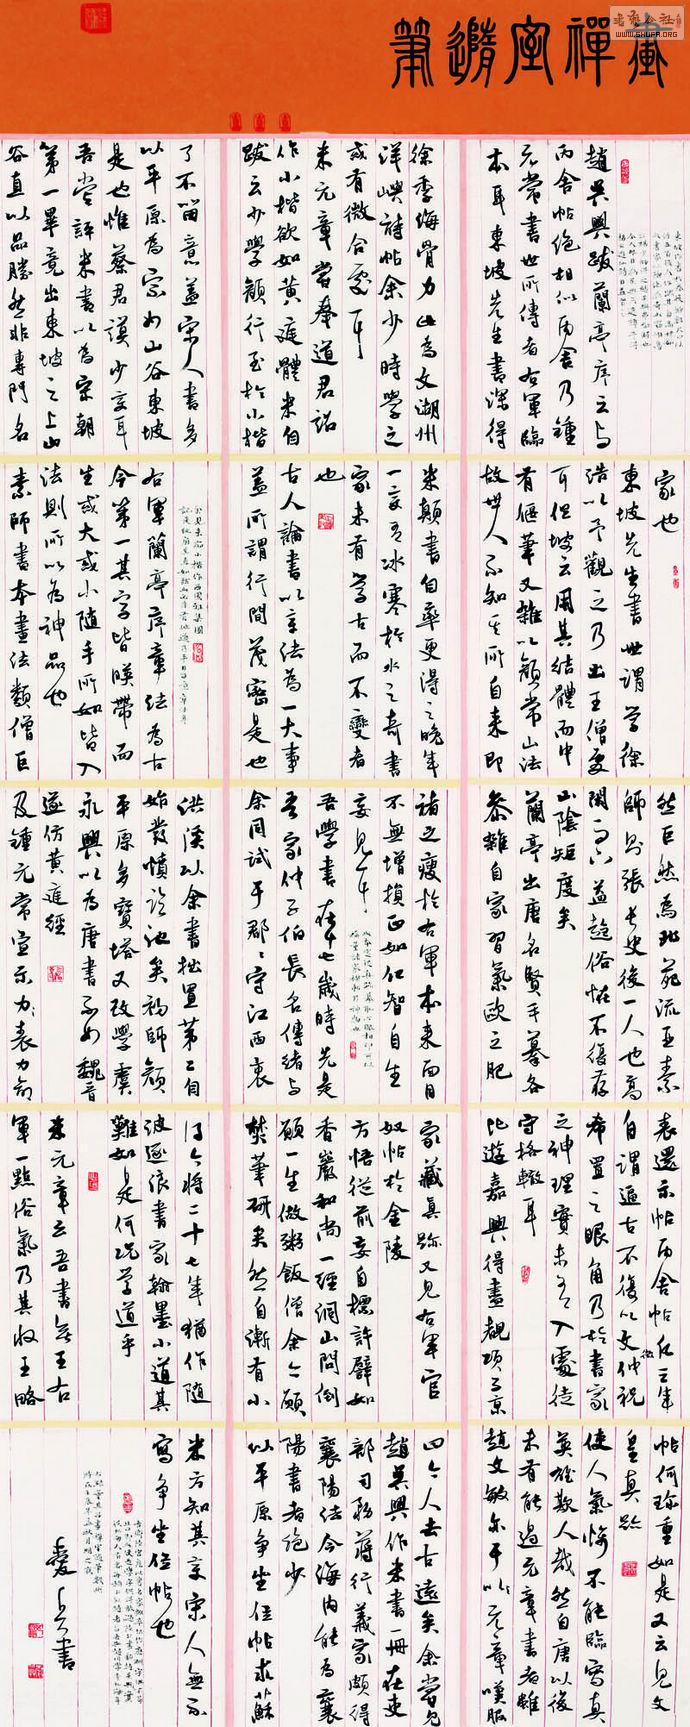 畫禪室隨筆
趙吳興跋蘭亭序云與
丙舍帖絕相似丙舍乃鍾
元常書世所傳者右軍臨
本耳東坡先生書深得
徐季海骨力此為文湖州
洋嶼詩帖余少時學之
或有微合處耳
米元章嘗奉道君詔
作小楷欲如黃庭體米自
跋云少學顏行至於小楷
了不留意蓋宋人書多
以平原為宗如山谷東坡
是也惟蔡君謨少變耳
吾嘗評米書以為宋朝
第一畢竟出東坡之上山
谷直以品勝然非專門名
家也
東坡先生書世謂學徐
浩以予觀之乃出王僧虔
耳但坡云用其結體而中
有偃筆又雜以顏常山法
故世人不知其所自來即
米顛書自率更得之晚年
一變有冰寒於水之奇書
家未有學古而不變者
也
古人論書以章法為一大事
蓋所謂行間茂密是也
余見米癡小楷作西園雅集圖
右軍蘭亭序章法為古
今第一其字皆暎帶而
生或大或小隨手所如皆入
法則所以為神品也
素師書本畫法類僧巨
然巨然為北苑流亞素
師則張長史後一人也高
閑而下益趨俗怪不復存
山陰矩度矣
蘭亭出唐名賢手摹各
參雜自家習氣歐之肥
褚之瘦於右軍本來面目
不無增損正如仁智自生
妄見耳
吾學書在十七歲時先是
吾家仲子伯長名傳緒與
余同試于郡郡守江西衷
洪溪以余書拙置第二自
始發憤臨池矣初師顏
平原多寶塔又改學虞
永興以為唐書不如魏晉
遂仿黃庭經
及鍾元常宣示力表力命
表還示帖丙舍帖凡三年
自謂逼古不復以文仲徵祝
希置之眼角乃於書家
之神理實未有入處徒
守格轍耳
比遊嘉興得盡覩項子京
家藏真跡又見右軍官
奴帖於金陵
方悟從前妄自標許譬如
香巖和尚一經洞山問倒
願一生做粥飯僧余亦願
焚筆研矣然自漸有小
得今將二十七年猶作隨
波逐浪書家翰墨小道其
難如是何況學道乎
米元章云吾書無王右
軍一點俗氣乃其收王略
帖何珍重如是又云見文
皇真跡
使人氣懾不能臨寫真
英雄欺人哉然自唐以後
未有能過元章書者雖
趙文敏亦于以元章嘆服
四今人去古遠矣余嘗見
趙吳興作米書一冊在吏
部司務蔣行義家頗得
襄陽法今海內能為襄
陽書者絕少
以平原爭坐位帖求蘇
米方知其變宋人無不
寫爭坐位帖也
WWW.SHUFA.ORG